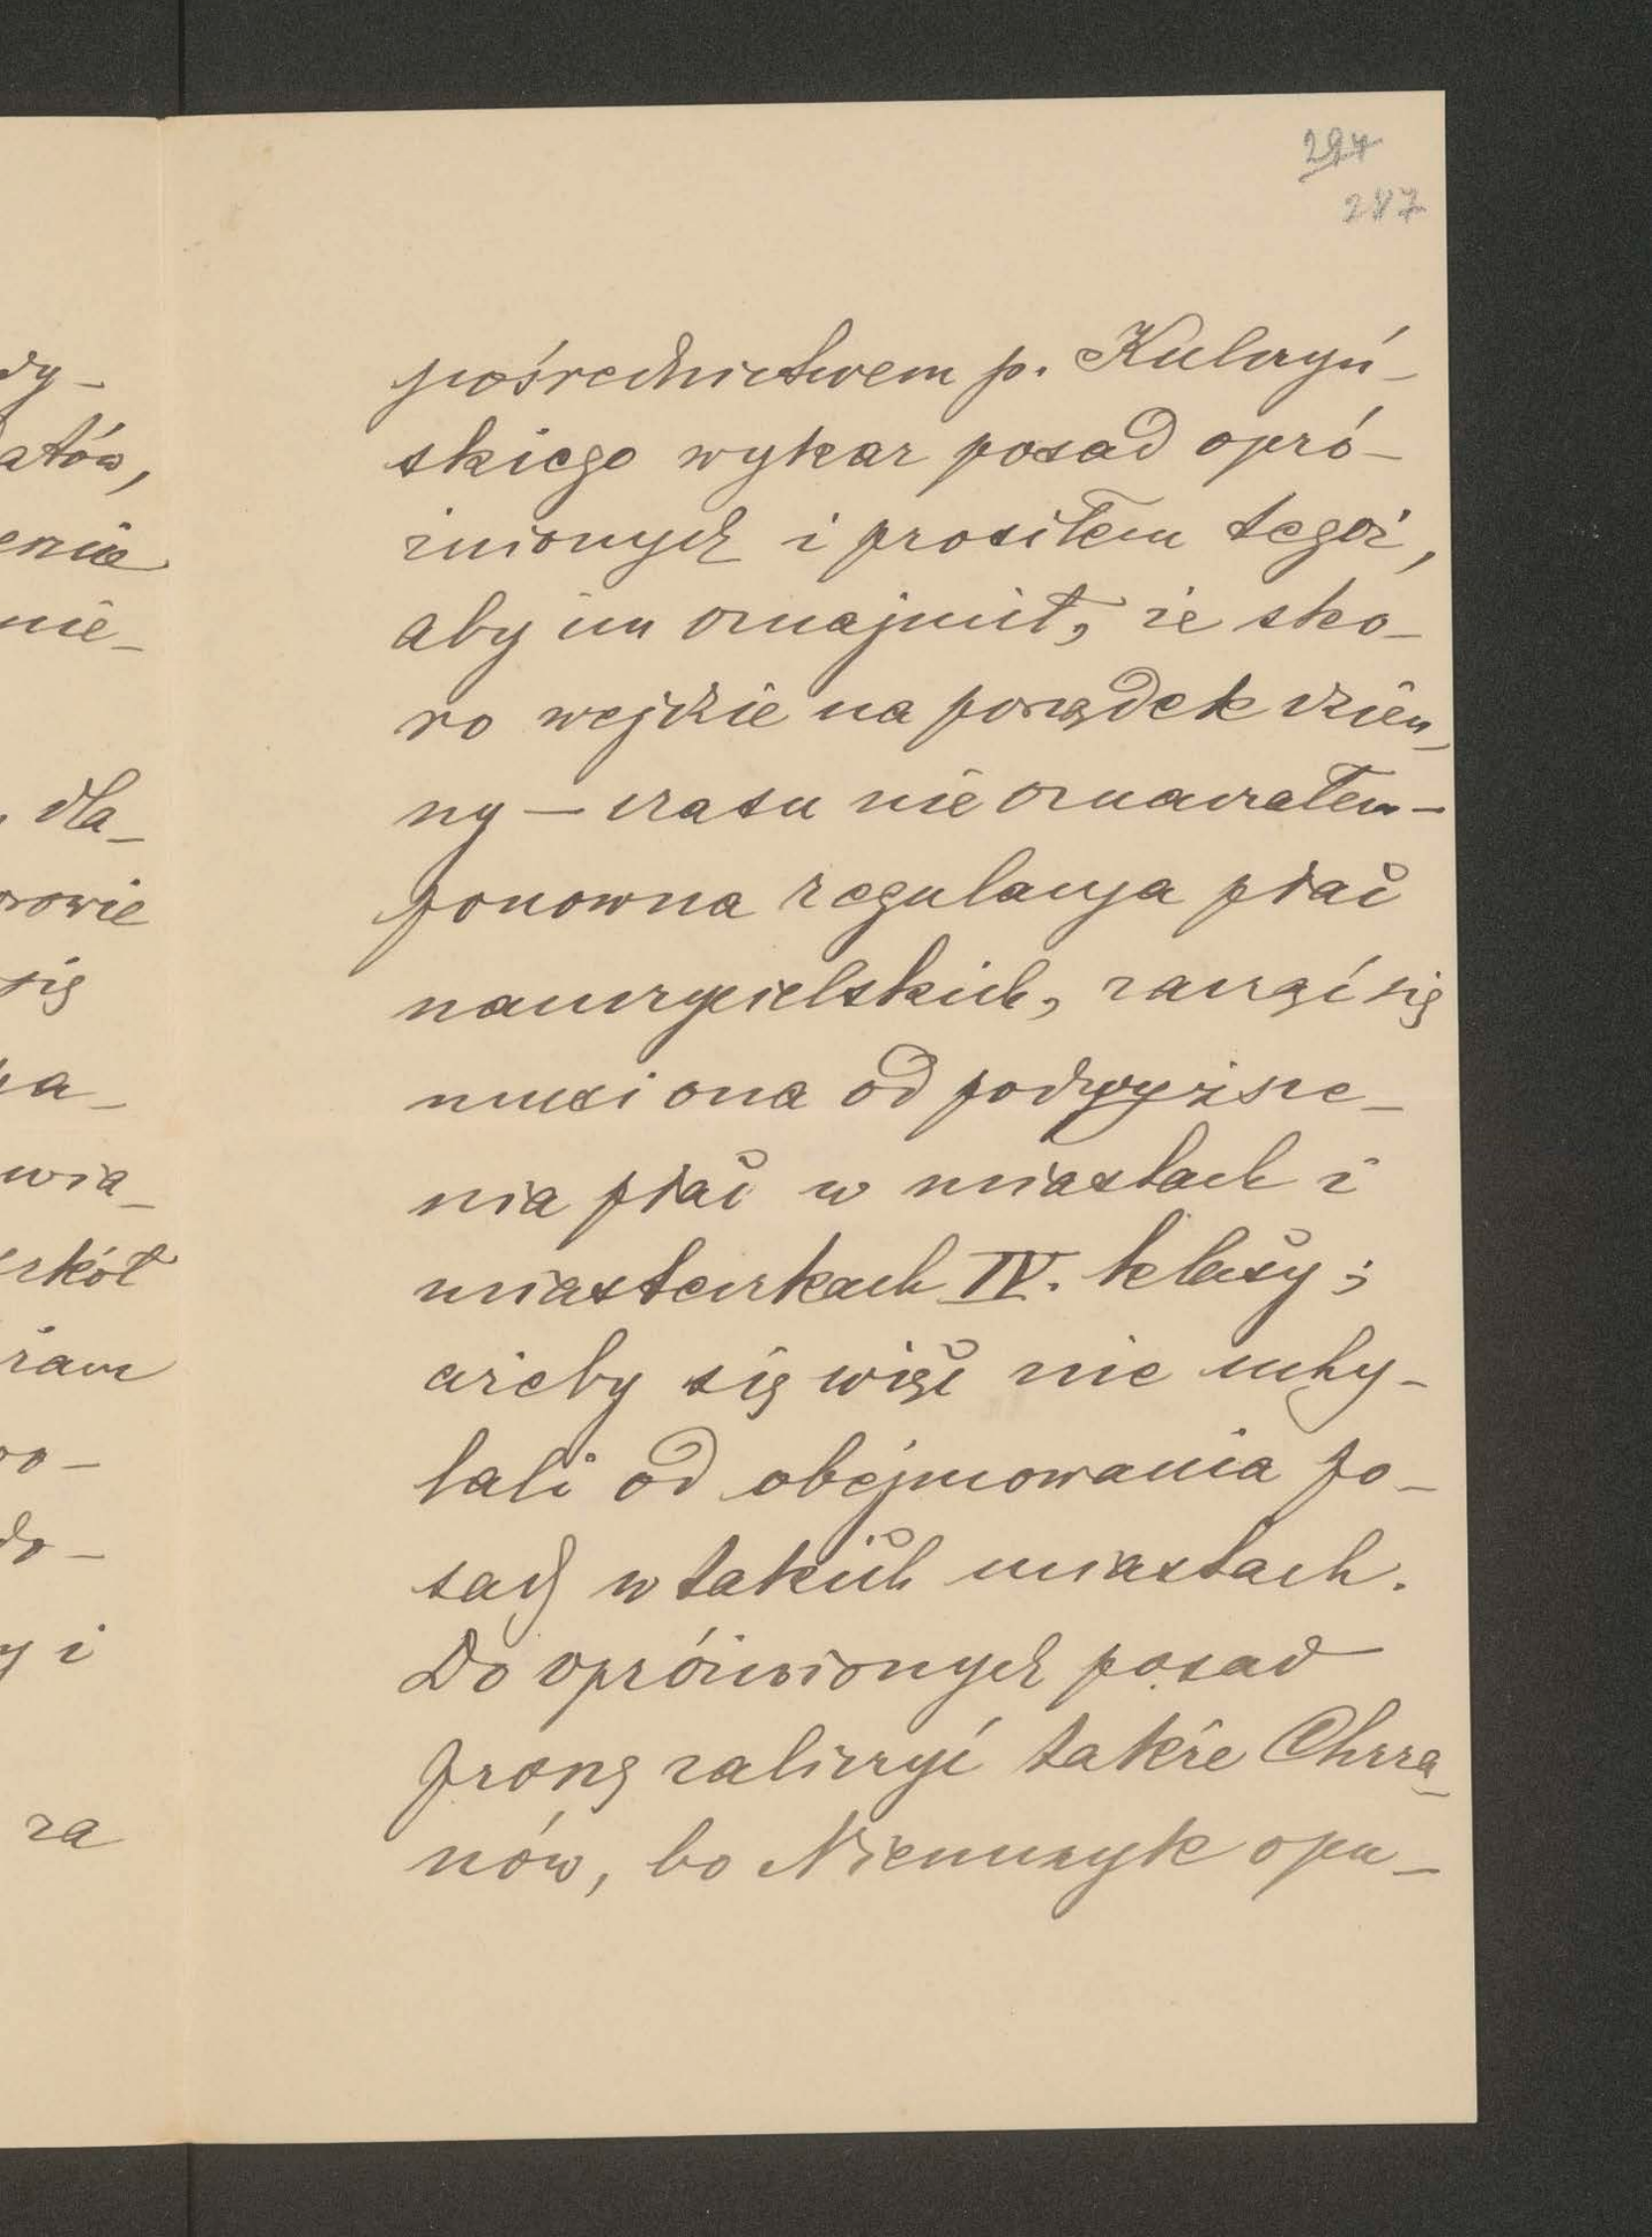 294
287
dy-
atów,
enie
nie-
dla-
orowie
się
wia-
szkół
do-
y i
za
pośrednictwem p. Kulczyń-
skiego wykaz posad opró-
żnionych i prosiłem tegoż,
aby im oznajmił, że sko-
ro wejdzie na porządek dzien-
ny — czasu nie oznaczałem —
ponowna regulacya płac
nauczycielskich, zacząć się
musi ona od podwyższe-
nia płac w miastach i
miasteczkach IV. klasy;
ażeby się więc nie uchy-
lali od obejmowania po-
sad w takich miastach.
Do opróżnionych posad
proszę zaliczyć także Chrza-
nów, bo Niemczyk opu-